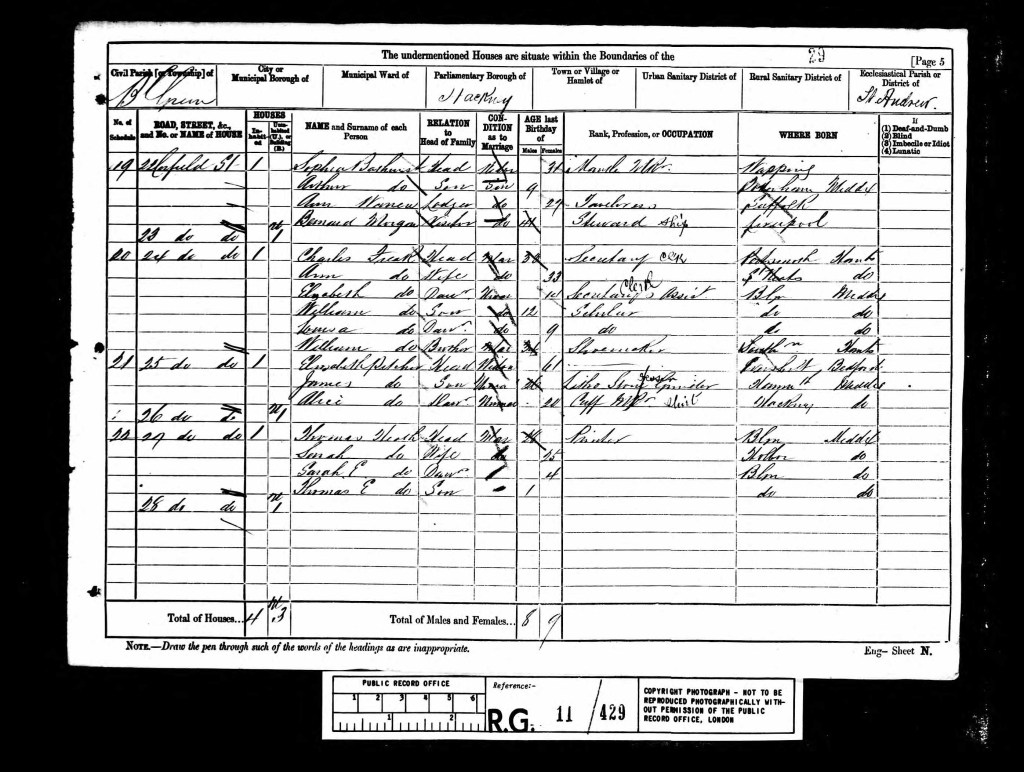 The undermentioned Houses are situate within the Boundaries of the
29
[Page 5
Civil Parish [or Township] of
City or Municipal Borough of
Municipal Ward of
Parliamentary Borough of
Town or Village or Hamlet of
Urban Sanitary District of
Rural Sanitary District of
Ecclesiastical Parish or District of
B Green
Hackney
St Andrew.
No. of Schedule
ROAD, STREET, &c., and No. or NAME of HOUSE
HOUSES
Inhabited
Uninhabited (U.), or Building (B.)
NAME and Surname of each Person
RELATION to Head of Family
CONDITION as to Marriage
AGE last Birthday of
Males
Females
Rank, Profession, or OCCUPATION
WHERE BORN
If
(1) Deaf-and-Dumb
(2) Blind
(3) Imbecile or Idiot
(4) Lunatic
19 St 1 Sophia Head 34 Mantle Wapping
Arthur do Son 9 Middx
Ann Warren Lodger do 27 Tailoress Suffolk
Bernard Morgan Visitor do Steward Ship Liverpool
23 do do 1
20 24 do do 1 Charles Freak Head Mar Secretary Clk Portsmouth Hants
Ann do Wife do 33 do
Elizabeth do Daur 14 Secretary's Assist Clerk Middx
William do Son do 12 Scholar do do
do Daur do 9 do do do
William do Brother Mar Shoemaker Hants
21 25 do do 1 Elizabeth Head Widow 61 Bedford
James do Son Litho Stone Grinder Middx
Alice do Daur 20 Cuff Shirt Hackney do
26 do 1
22 27 do do 1 Thomas Heath Head Mar Printer Middx
Sarah do Wife do 25 do
Sarah E do Daur 4 do
Thomas E do Son 1 do do
28 do do 1
Total of Houses... 4 3
Total of Males and Females... 8 9
NOTE.—Draw the pen through such of the words of the headings as are inappropriate.
Eng– Sheet N.
PUBLIC RECORD OFFICE
1 2 3 4 5 6
1 2
Reference:-
R.G. 11 / 429
COPYRIGHT PHOTOGRAPH - NOT TO BE REPRODUCED PHOTOGRAPHICALLY WITHOUT PERMISSION OF THE PUBLIC RECORD OFFICE, LONDON